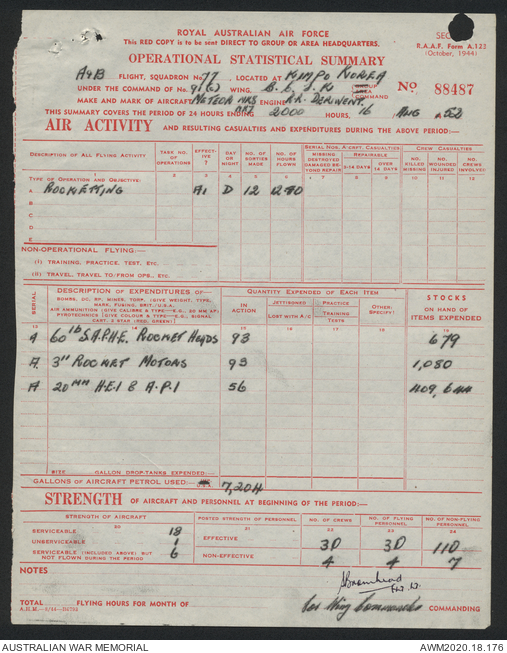 ROYAL AUSTRALIAN AIR FORCE
This RED COPY is to be sent DIRECT TO GROUP OR AREA HEADQUARTERS.
R.A.A.F. Form A.123
(October, 1944)
OPERATIONAL STATISTICAL SUMMARY
A & B FLIGHT, SQUADRON No 77, LOCATED AT KIMPO KOREA
UNDER THE COMMAND OF No 91 (C) WING, GROUP AREA COMMAND No 88487
MAKE AND MARK OF AIRCRAFT METEOR MK8 ENGINE R.R. DERWENT.
THIS SUMMARY COVERS THE PERIOD OF 24 HOURS ENDING AT 2000 HOURS, 16 AUG 52
AIR ACTIVITY AND RESULTING CASUALTIES AND EXPENDITURES DURING THE ABOVE PERIOD:—
DESCRIPTION OF ALL FLYING ACTIVITY TASK NO. OF OPERATIONS EFFECTIVE ? DAY OR NIGHT NO. OF SORTIES MADE NO. OF HOURS FLOWN SERIAL NOS. A/CRAFT. CASUALTIES CREW CASUALTIES
MISSING DESTROYED DAMAGED BEYOND REPAIR REPAIRABLE 2-14 DAYS OVER 14 DAYS NO. KILLED MISSING NO. WOUNDED INJURED NO. CREWS INVOLVED
1 2 3 4 5 6 7 8 9 10 11 12
TYPE OF OPERATION AND OBJECTIVE:
A. ROCKETTING A1 D 12 12.80
B.
C.
D.
E.
NON-OPERATIONAL FLYING:—
(I) TRAINING, PRACTICE, TEST, ETC.
(II) TRAVEL, TRAVEL TO/FROM OPS., ETC.
SERIAL DESCRIPTION OF EXPENDITURES OF— QUANTITY EXPENDED OF EACH ITEM STOCKS
BOMBS, DC, RP, MINES, TORP. (GIVE WEIGHT, TYPE, MARK, FUSING, BRIT./U.S.A.
AIR AMMUNITION (GIVE CALIBRE & TYPE—E.G., 20 MM AP.)
PYROTECHNICS (GIVE COLOUR & TYPE—E.G., SIGNAL CART. 2 STAR (RED, GREEN))
IN ACTION JETTISONED LOST WITH A/C PRACTICE TRAINING TESTS OTHER: SPECIFY ON HAND OF ITEMS EXPENDED
13 14 15 16 17 18 19
A 60 lb S.A.P.H.E. ROCKET HEADS 93 679
A. 3" ROCKET MOTORS 93 1,080
A 20MM H.E.I & A.P.I 56 409,644
SIZE GALLON DROP-TANKS EXPENDED:—
GALLONS OF AIRCRAFT PETROL USED:— U.S.A. 7,204
STRENGTH OF AIRCRAFT AND PERSONNEL AT BEGINNING OF THE PERIOD:—
STRENGTH OF AIRCRAFT POSTED STRENGTH OF PERSONNEL NO. OF CREWS NO. OF FLYING PERSONNEL NO. OF NON-FLYING PERSONNEL
20 21 22 23 24
SERVICEABLE 18
UNSERVICEABLE 1 EFFECTIVE 30 30 110
SERVICEABLE (INCLUDED ABOVE) BUT NOT FLOWN DURING THE PERIOD 6 NON-EFFECTIVE 4 4 7
NOTES
for Wing Commander COMMANDING
TOTAL FLYING HOURS FOR MONTH OF
AUSTRALIAN WAR MEMORIAL AWM2020.18.176